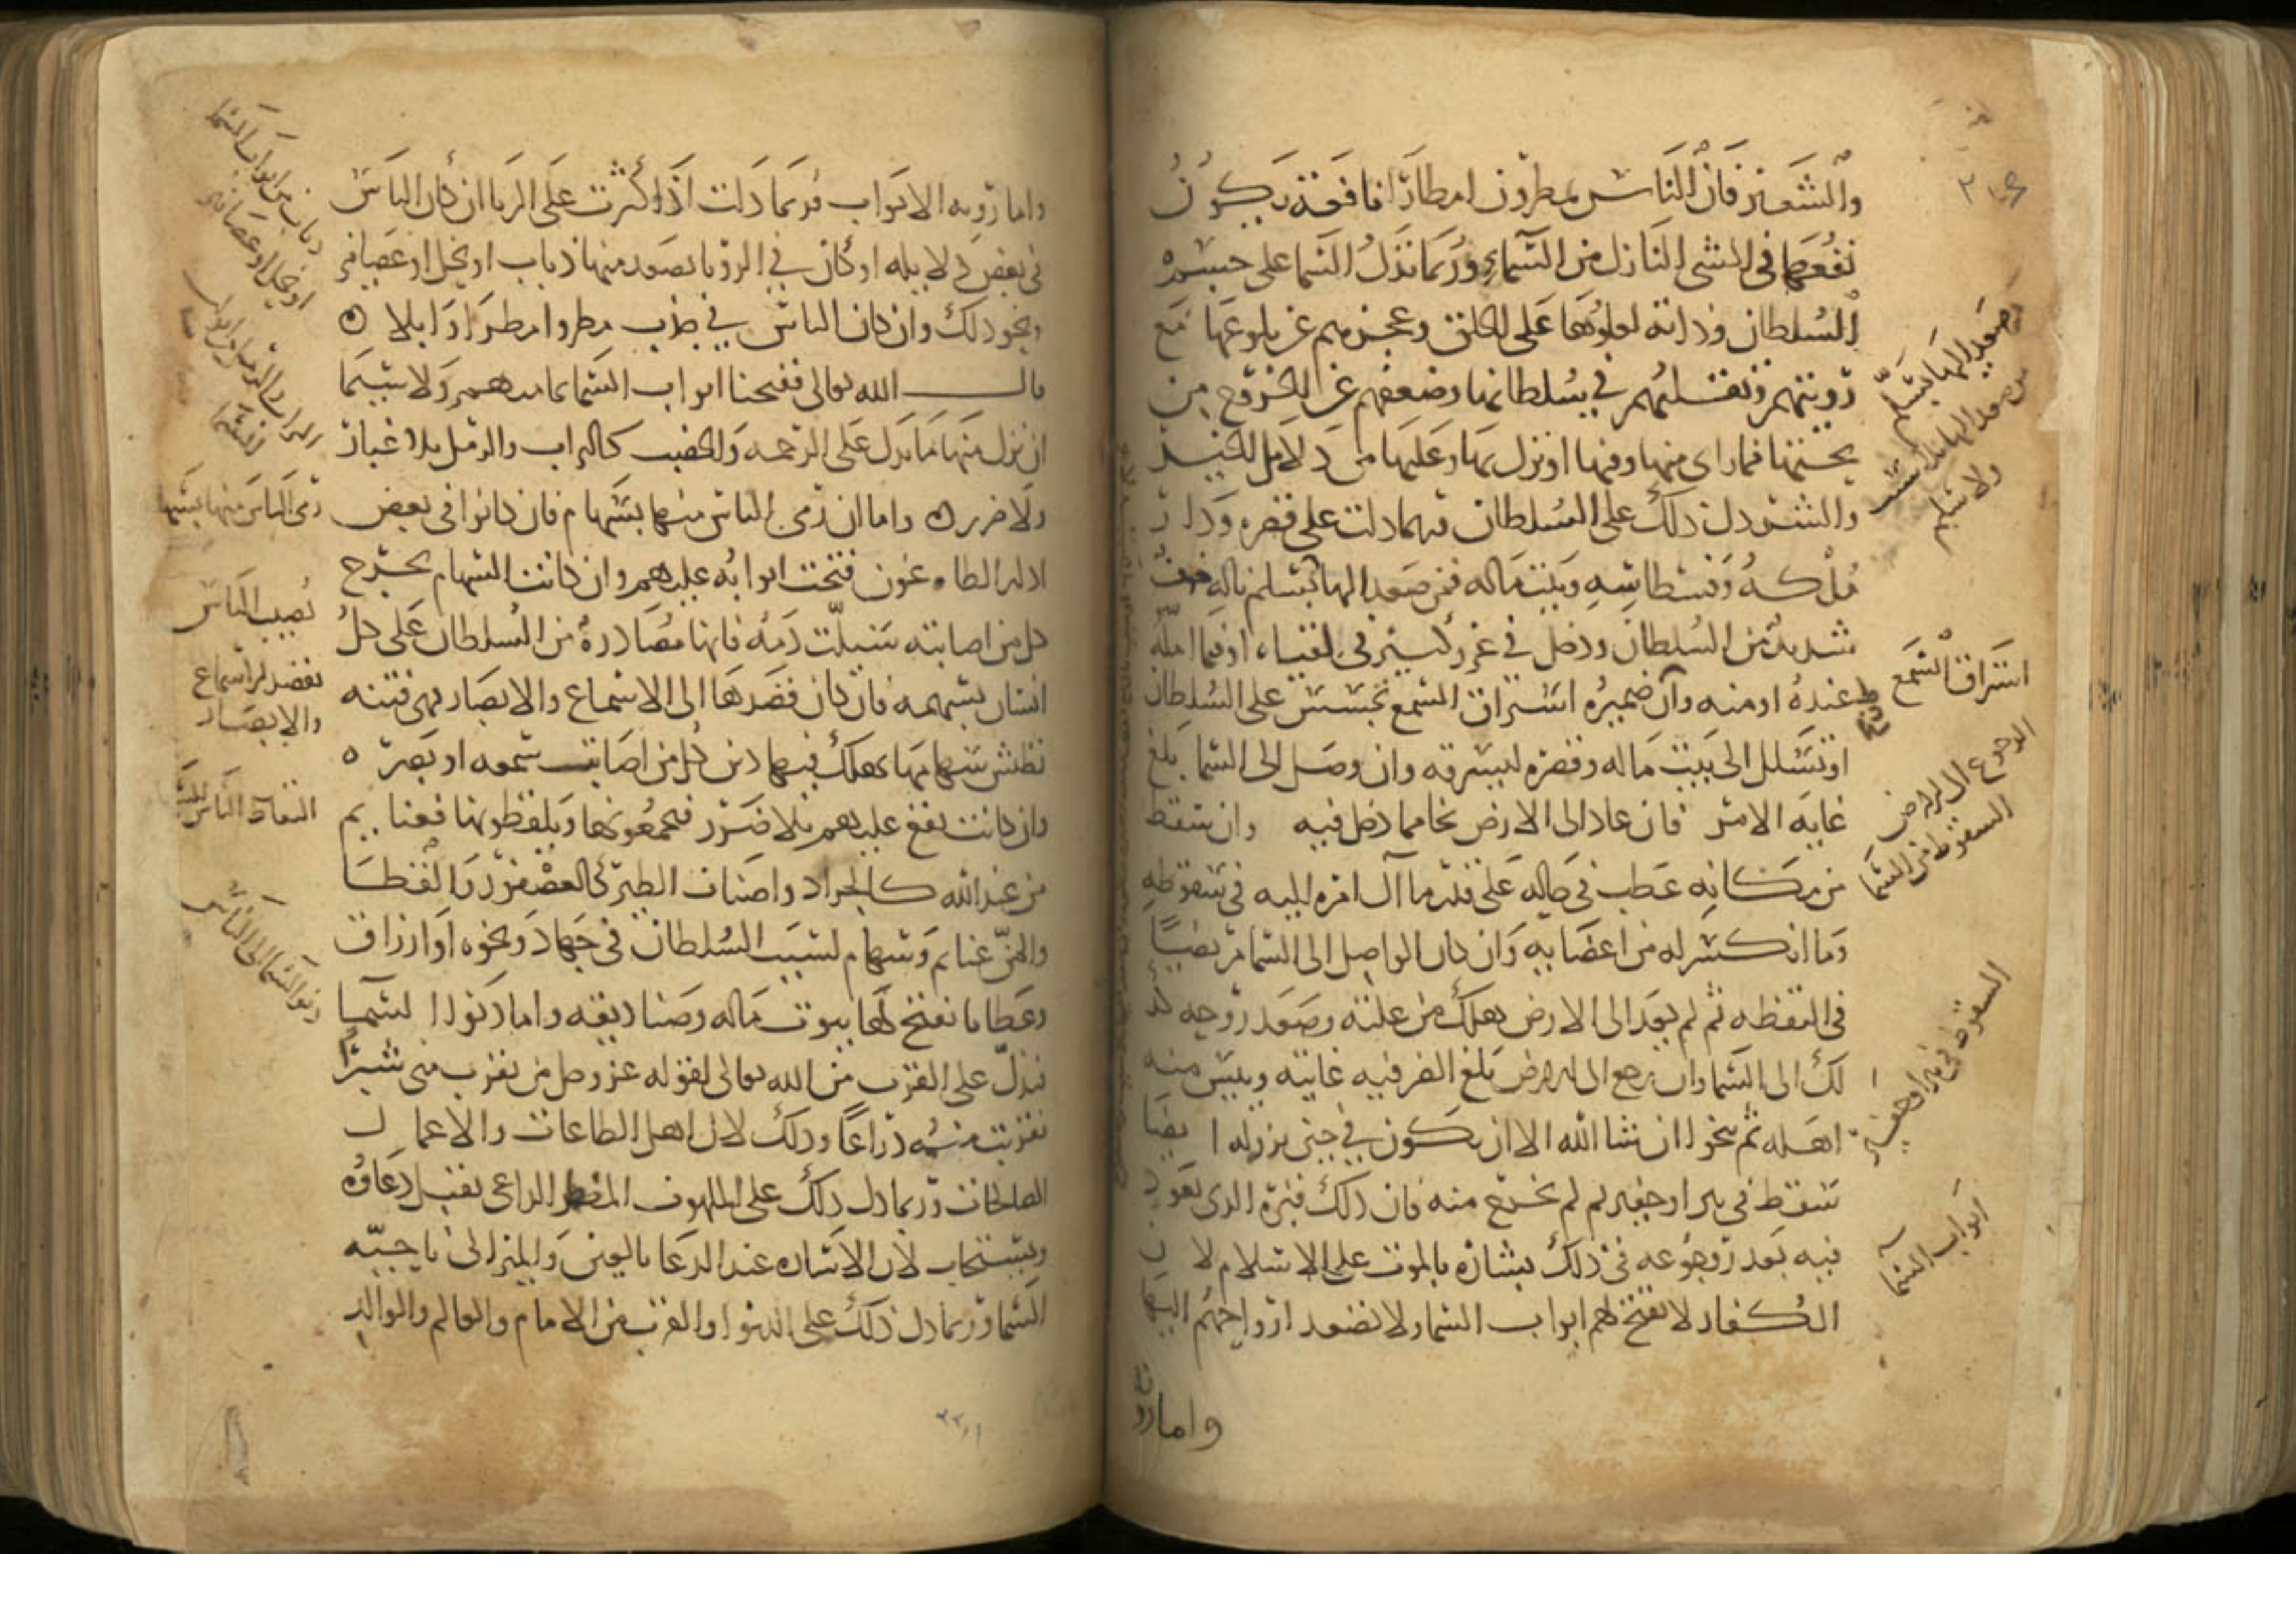 ٢١٤
والشعير فان الناس يمطرون امطارا نافعة يكون
نفعها في الشي النازل من السماء وربما تدل السما على حسم
السلطان وذاته لعلوها على الخلق وعجزهم عن بلوغها مع
رويتهم وتقلبهم في سلطانها وضعفهم عن الخروج من
تحتها فما راى منها وفيها او نزل بها وعليها من دلايل الخير
والشر دل ذلك على السلطان وربما دلت على قصره ودار
ملكه وفسطاطه وبيت ماله فمن صعد اليها بسلم ناله
شديد من السلطان ودخل في غرر كبير في لقياه او فيما امله
عنده او منه وان ضميره استراق السمع تجسس على السلطان
او تسلل الى بيت ماله وقصره ليسرقه وان وصل الى السما بلغ
غاية الامر فان عاد الى الارض نجا مما دخل فيه وان سقط
من مكانه عطب في حاله على قدر ما آل امره اليه في سقوطه
وما انكسر له من اعضايه وان كان الواصل الى السما مريضا
في اليقظه ثم لم يعد الى الارض هلك من علته وصعد روحه كذ
لك الى السما وان رجع الى الارض بلغ الضر فيه غايته وييس منه
اهله ثم ينجو ان شا الله الا ان يكون في حين نزوله ايضا
سقط في بير او حفير ثم لم يخرج منه فان ذلك قبره الذى يعود
فيه بعد رجوعه في ذلك بشاره بالموت على الاسلام لان
الكفار لا تفتح لهم ابواب السما ولا تصعد ارواحهم اليها
واما رؤ
صعد اليها بسلم
من صعد اليها بلا سبب
ولا سلم
استراق السمع
الرجوع الى الارض
السقوط من السما
السقوط في بير او حفير
ابواب السما
واما رويه الابواب فربما دلت اذا كثرت على الربا ان كان الناس
في بعض دلايله او كان في الرويا يصعد منها ذباب او نحل او عصافير
ونحو ذلك وان كان الناس في جذب مطروا مطرا وابلا ه
قال الله تعالى ففتحنا ابواب السما بما منهمر ولا سيما
ان نزل منها ما يدل على الرحمه والخصب كالتراب والرمل بلا غبار
ولا ضرر ه واما ان رمى الناس منها بسهام فان كانوا في بعض
ادله الطاعون فتحت ابوابه عليهم وان كانت السهام تجرح
كل من اصابته وسيلت دمه فانها مصادرة من السلطان على كل
انسان بسهمه فان كان قصدها الى الاسماع والابصار فهى فتنه
تطيش سهامها يهلك فيها دين كل من اصابت سمعه او بصره ه
وان كانت تقع عليهم بلا ضرر فيجمعونها ويلتقطونها فغنايم
من عند الله كالجراد واصناف الطير كالعصفور والقطا
والمن غنايم وسهام لسبب السلطان في جهاد ونحوه او ارزاق
وعطايا تفتح لها بيوت ماله وصناديقه واما دنو السما
فتدل على القرب من الله تعالى لقوله عز وجل من تقرب مني شبرا
تقربت منه ذراعا وذلك لاهل الطاعات والاعمال
الصالحات وربما دل ذلك على الملهوف المضطر الداعى تقبل دعاوه
ويستجاب لان الاشاره عند الدعا بالعين والمنزالى ناحيه
السما وربما دل ذلك على الدنو والقرب من الامام والعالم والوالد
ذباب من ابواب السما
او نحل او عصافير
رمى الناس منها بسهام
تصيب الناس
تقصد الاسماع
والابصار
التقاط الناس
دنو السما الى الناس